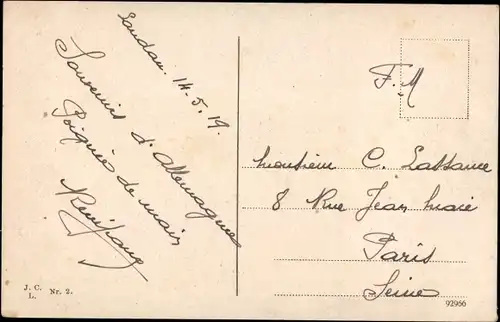 Landau. 14.5.19.
Souvenirs d'Allemagne
Poignée de main
F.M
Monsieur C. Lassance
8 Rue Jean Marie
Paris
Seine
J. C.
L. Nr. 2.
92966